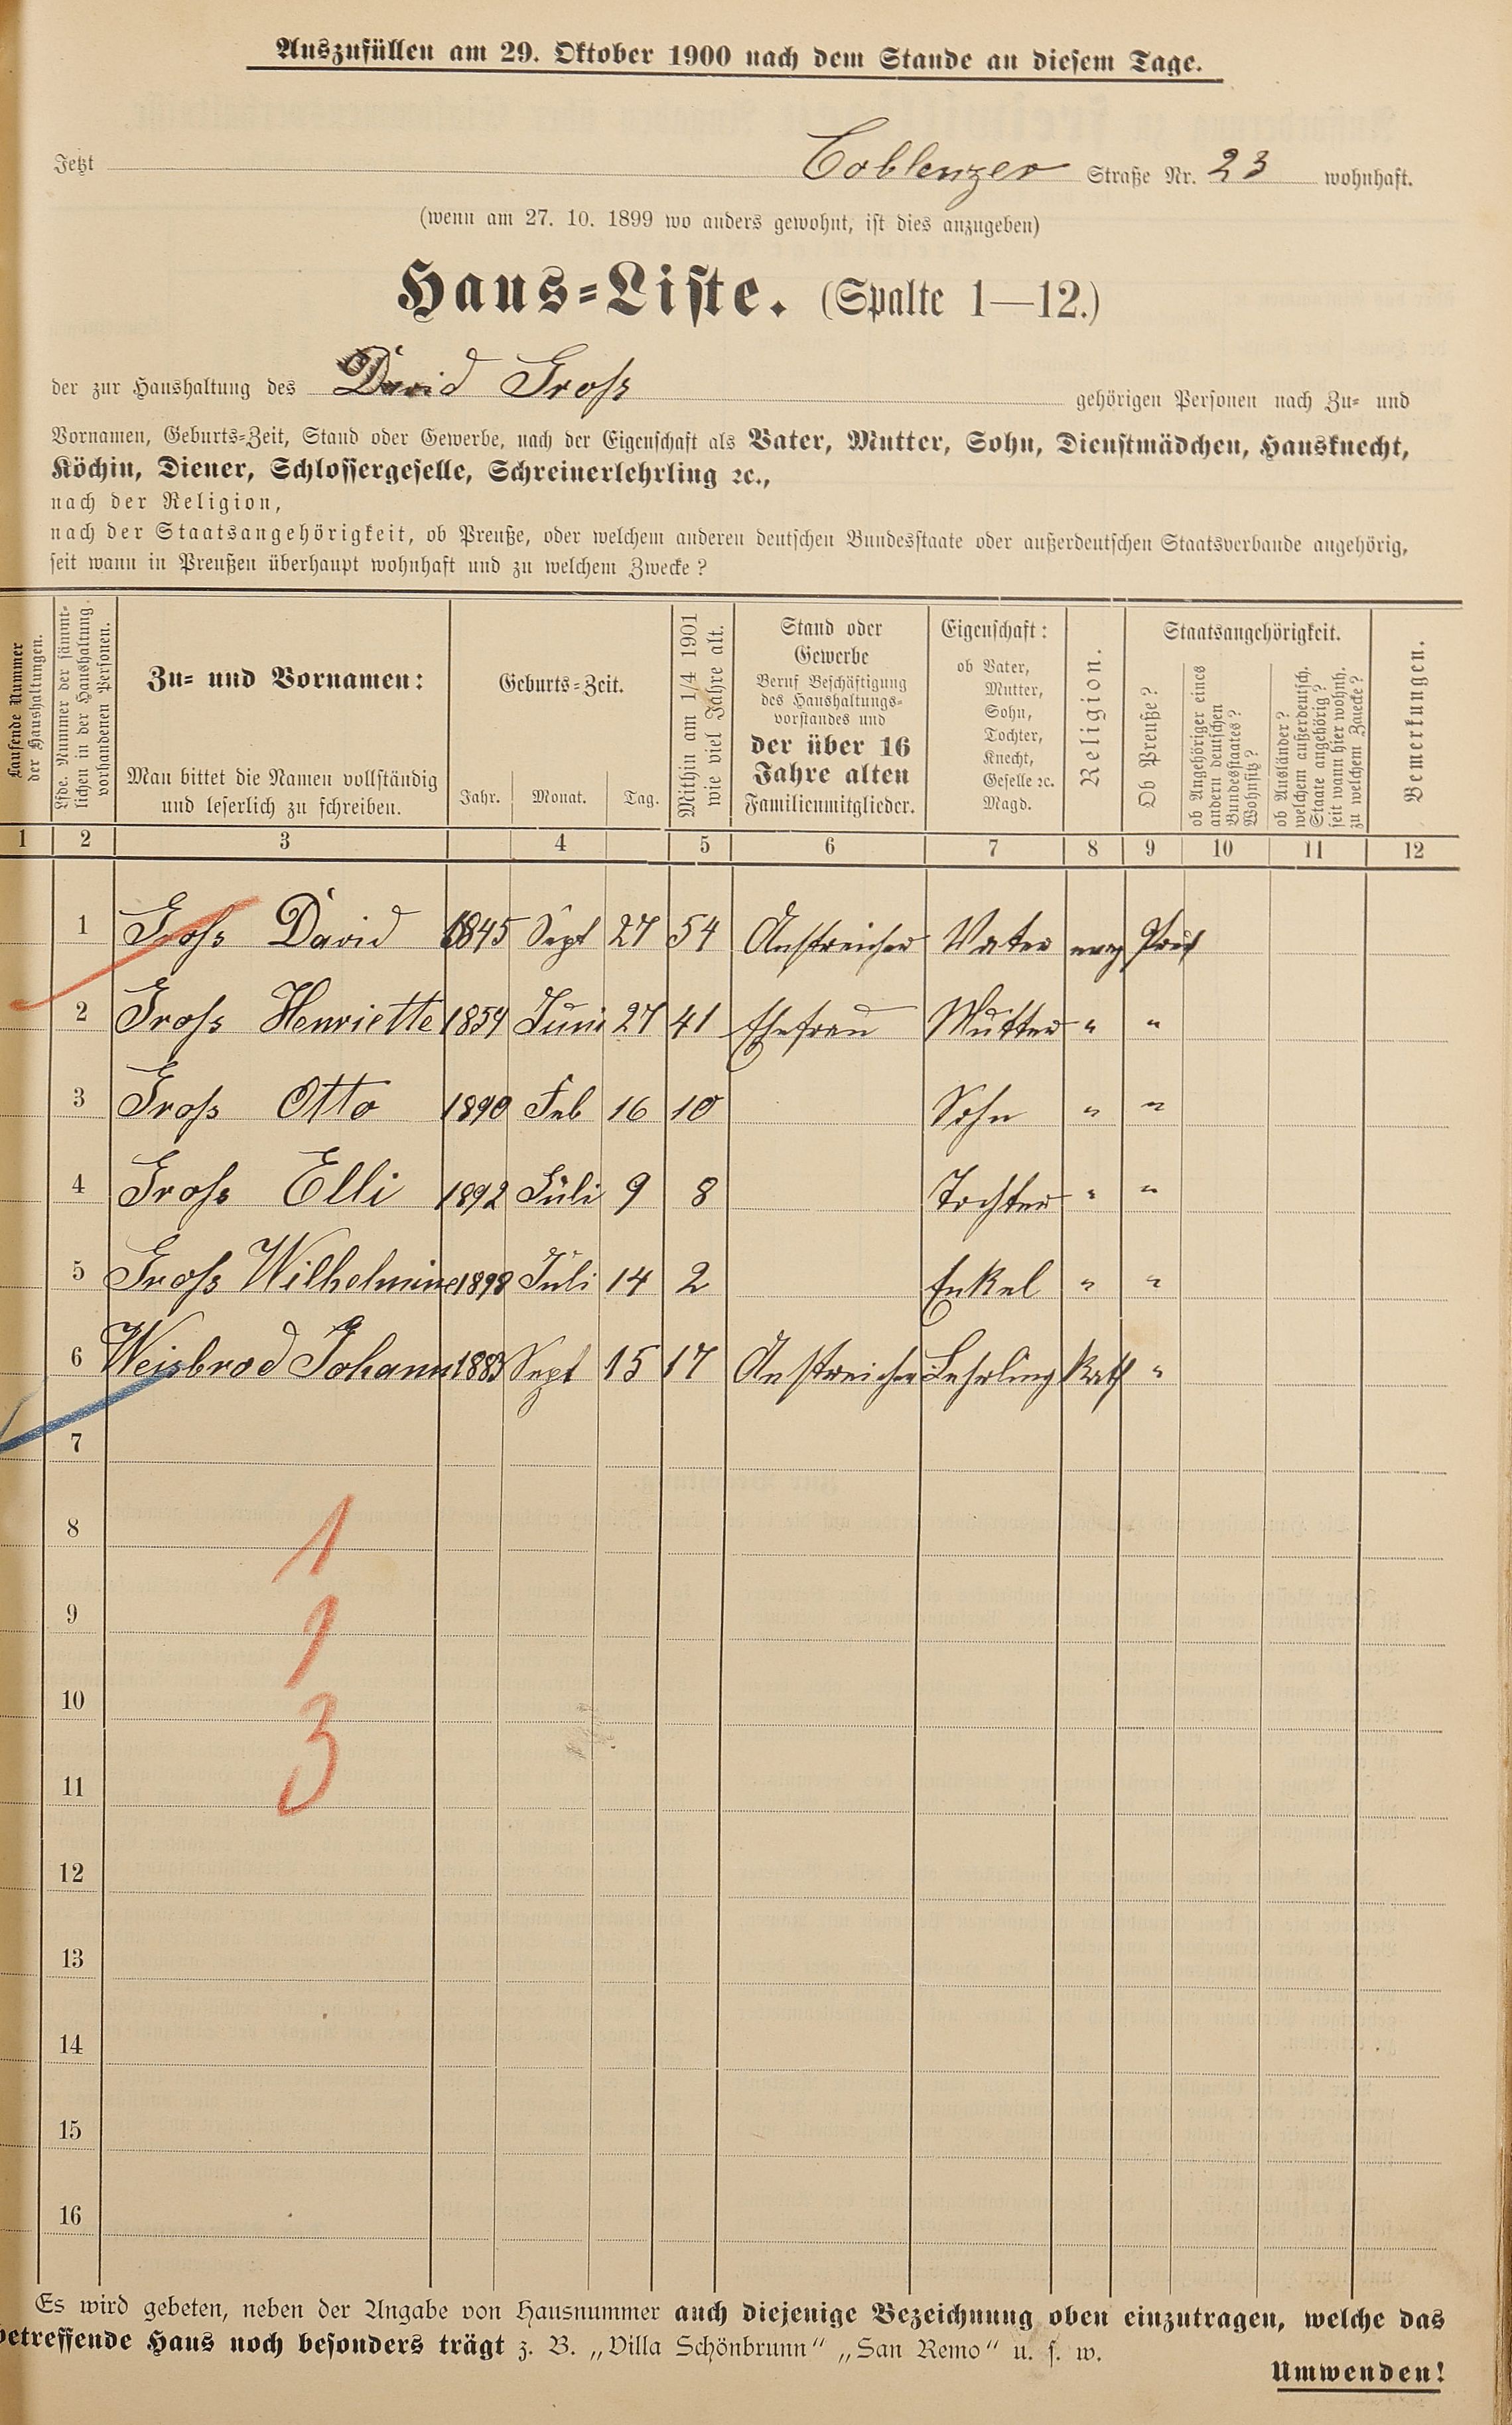 Auszufüllen am 29. Oktober 1900 nach dem Stande an diesem Tage.
Jetzt Coblenzer Straße Nr. 23 wohnhaft.
(wenn am 27. 10. 1899 wo anders gewohnt, ist dies anzugeben)
Haus-Liste. (Spalte 1—12.)
der zur Haushaltung des David Gross gehörigen Personen nach Zu- und
Vornamen, Geburts-Zeit, Stand oder Gewerbe, nach der Eigenschaft als Vater, Mutter, Sohn, Dienstmädchen, Hausknecht,
Köchin, Diener, Schlossergeselle, Schreinerlehrling ꝛc.,
nach der Religion,
nach der Staatsangehörigkeit, ob Preuße, oder welchem anderen deutschen Bundesstaate oder außerdeutschen Staatsverbande angehörig,
seit wann in Preußen überhaupt wohnhaft und zu welchem Zwecke?
Laufende Nummer
der Haushaltungen.
Lfde. Nummer der sämmt-
lichen in der Haushaltung
vorhandenen Personen.
Zu- und Vornamen:
Man bittet die Namen vollständig
und leserlich zu schreiben.
Geburts-Zeit.
Jahr. Monat. Tag.
Mithin am 1/4 1901
wie viel Jahre alt.
Stand oder
Gewerbe
Beruf Beschäftigung
des Haushaltungs-
vorstandes und
der über 16
Jahre alten
Familienmitglieder.
Eigenschaft:
ob Vater,
Mutter,
Sohn,
Tochter,
Knecht,
Geselle ꝛc.
Magd.
Religion.
Staatsangehörigkeit.
Ob Preuße?
ob Angehöriger eines
andern deutschen
Bundesstaates?
Wohnsitz?
ob Ausländer?
welchem außerdeutsch.
Staate angehörig?
seit wann hier wohnh.
zu welchem Zwecke?
Bemerkungen.
1 2 3 4 5 6 7 8 9 10 11 12
1 Gross David 1845 Sept 27 54 Anstreicher Vater evag Preuß
2 Gross Henriette 1859 Juni 27 41 Ehefrau Mutter " "
3 Gross Otto 1890 Feb 16 10 Sohn " "
4 Gross Elli 1892 Juli 9 8 Tochter " "
5 Gross Wilhelmine 1898 Juli 14 2 Enkel " "
6 Weisbrod Johann 1883 Sept 15 17 Anstreicher Lehrling Kath "
7
8 1
9 1
10 3
11
12
13
14
15
16
Es wird gebeten, neben der Angabe von Hausnummer auch diejenige Bezeichnung oben einzutragen, welche das
betreffende Haus noch besonders trägt z. B. „Villa Schönbrunn“ „San Remo“ u. s. w.
Umwenden!